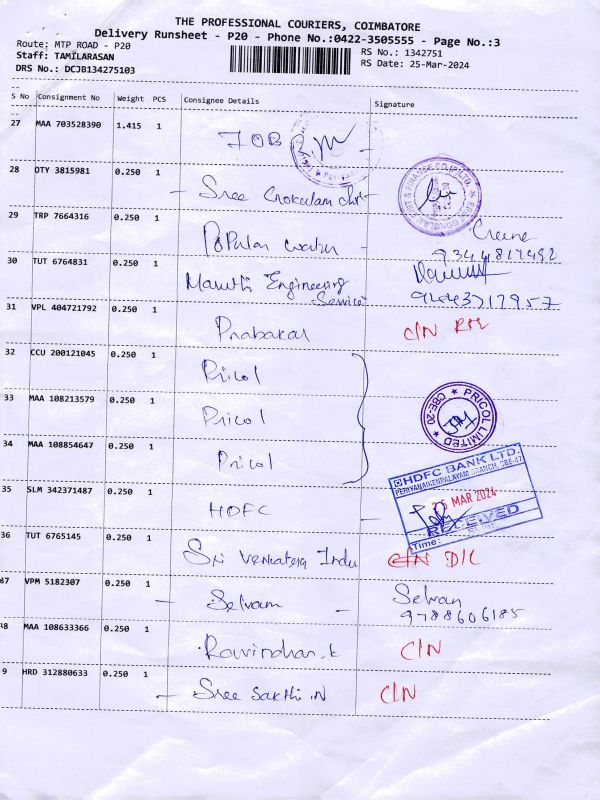 THE PROFESSIONAL COURIERS, COIMBATORE
Delivery Runsheet - P20 - Phone No.:0422-3505555 - Page No.:3
Route: MTP ROAD - P20
RS No.: 1342751
Staff: TAMILARASAN
RS Date: 25-Mar-2024
DRS No.: DCJB134275103
S No Consignment No Weight PCS Consignee Details Signature
27 MAA 703528390 1.415 1
28 OTY 3815981 0.250 1 Sree Gokulam chit
29 TRP 7664316 0.250 1 Popular
30 TUT 6764831 0.250 1 Maruthi Engineering
Service
31 VPL 404721792 0.250 1 Prabakar C/N
32 CCU 200121045 0.250 1 Pricol
33 MAA 108213579 0.250 1 Pricol
PRICOL LIMITED CBE-20
34 MAA 108854647 0.250 1 Pricol
HDFC BANK LTD.
PERIYANAICKENPALAYAM BRANCH, CBE-47
35 SLM 342371487 0.250 1 HDFC
MAR 2024
RECEIVED
Time:
36 TUT 6765145 0.250 1 Sri Venkatera Indu C/N D/L
37 VPM 5182307 0.250 1 Selvam Selvan
9788606185
38 MAA 108633366 0.250 1 Ravindhan.k C/N
9 HRD 312880633 0.250 1 Sree Sakthi.N C/N